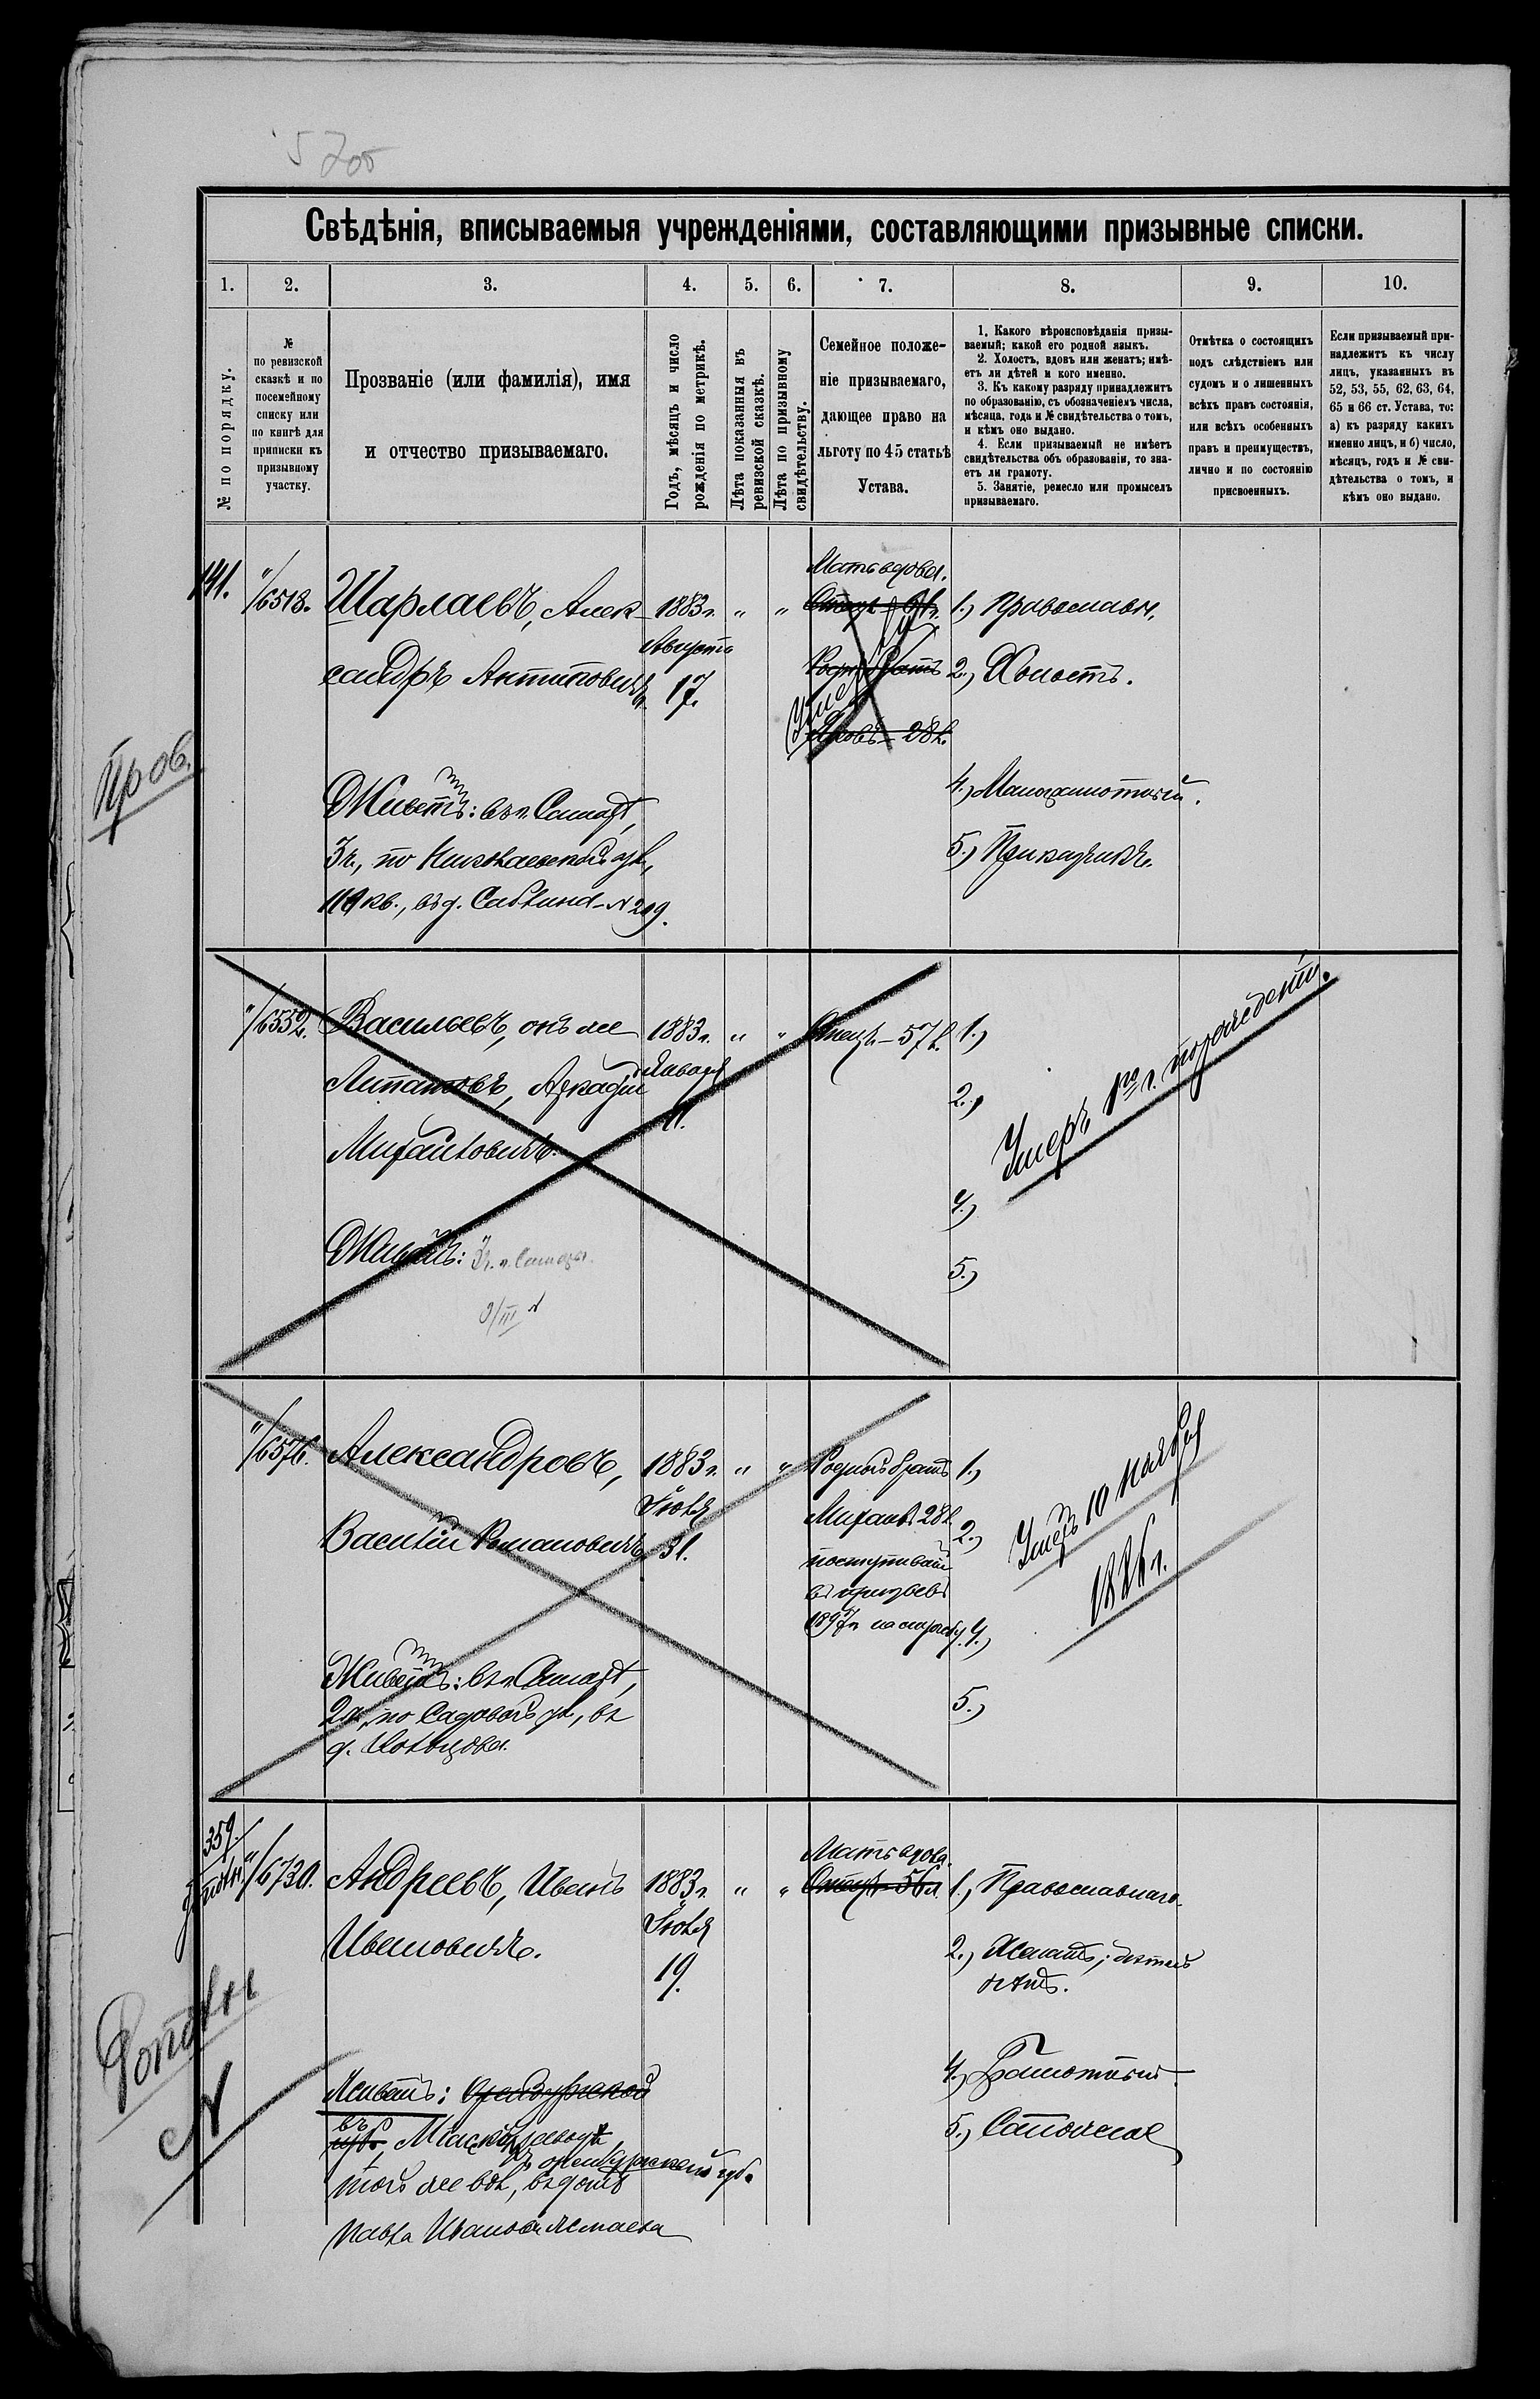 5700
Свѣдѣнія, вписываемыя учрежденіями, составляющими призывные списки.
1. 2. 3. 4. 5. 6. 7. 8. 9. 10.
№ по порядку.
№
по ревизской
сказкѣ и по
посемейному
списку или
по книгѣ для
приписки къ
призывному
участку.
Прозваніе (или фамилія), имя
и отчество призываемаго.
Годъ, мѣсяцъ и число
рожденія по метрикѣ.
Лѣта показанныя въ
ревизской сказкѣ.
Лѣта по призывному
свидѣтельству.
Семейное положе-
ніе призываемаго,
дающее право на
льготу по 45 статьѣ
Устава.
1. Какого вѣроисповѣданія призы-
ваемый; какой его родной языкъ.
2. Холостъ, вдовъ или женатъ; имѣ-
етъ ли дѣтей и кого именно.
3. Къ какому разряду принадлежитъ
по образованію, съ обозначеніемъ числа,
мѣсяца, года и № свидѣтельства о томъ,
и кѣмъ оно выдано.
4. Если призываемый не имѣетъ
свидѣтельства объ образованіи, то зна-
етъ ли грамоту.
5. Занятіе, ремесло или промыселъ
призываемаго.
Отмѣтка о состоящихъ
подъ слѣдствіемъ или
судомъ и о лишенныхъ
всѣхъ правъ состоянія,
или всѣхъ особенныхъ
правъ и преимуществъ,
лично и по состоянію
присвоенныхъ.
Если призываемый при-
надлежитъ къ числу
лицъ, указанныхъ въ
52, 53, 55, 62, 63, 64,
65 и 66 ст. Устава, то:
а) къ разряду какихъ
именно лицъ, и б) число,
мѣсяцъ, годъ и № сви-
дѣтельства о томъ, и
кѣмъ оно выдано.
Пров.
141. "/6518. Шарлаевъ, Алек-
сандръ Антиповичъ.
1883 г.
Августа
17.
" "
Мать вдова.
Отецъ
Родн. братъ
Яковъ – 28 л.
1.) Православн.
2.) Холостъ.
4.) Малограмотный.
5.) Прикащикъ.
Живетъ: въ г. Самарѣ,
3 ч., по Николаевской ул.,
119 кв., въ д. Савлина № 209.
"/6552. Васильевъ, онъ же
Липатовъ, Аркадій
Михайловичъ.
1883 г.
Января
" "
Отецъ – 57 л.
1.)
2.)
4.)
5.)
Умеръ 1го г. по рождени.
Живетъ: 3 ч. г. Самары.
9/III
"/6576. Александровъ,
Василій Романовичъ
1883 г.
Іюля
31.
" "
Родной братъ
Михаилъ 28 л.
поступивш.
въ призывъ
1897 г. на службу.
1.)
2.)
4.)
5.)
Умеръ 10 ноября
1886 г.
Живетъ: въ г. Самарѣ,
2 ч., по Садовой ул., въ
д.
359.
"/6730. Андреевъ, Иванъ
Ивановичъ.
1883 г.
Іюля
19.
" "
Мать вдова.
Отецъ – 56 л.
1.) Православнаго.
2.) Женатъ; дѣтей
4.) Грамотный.
5.) Сапожное
N
Живетъ: Оренбургской
въ
губ., Міасскій заводъ
въ оренбургской губ.
той же вол., въ домѣ
Павла Иванова